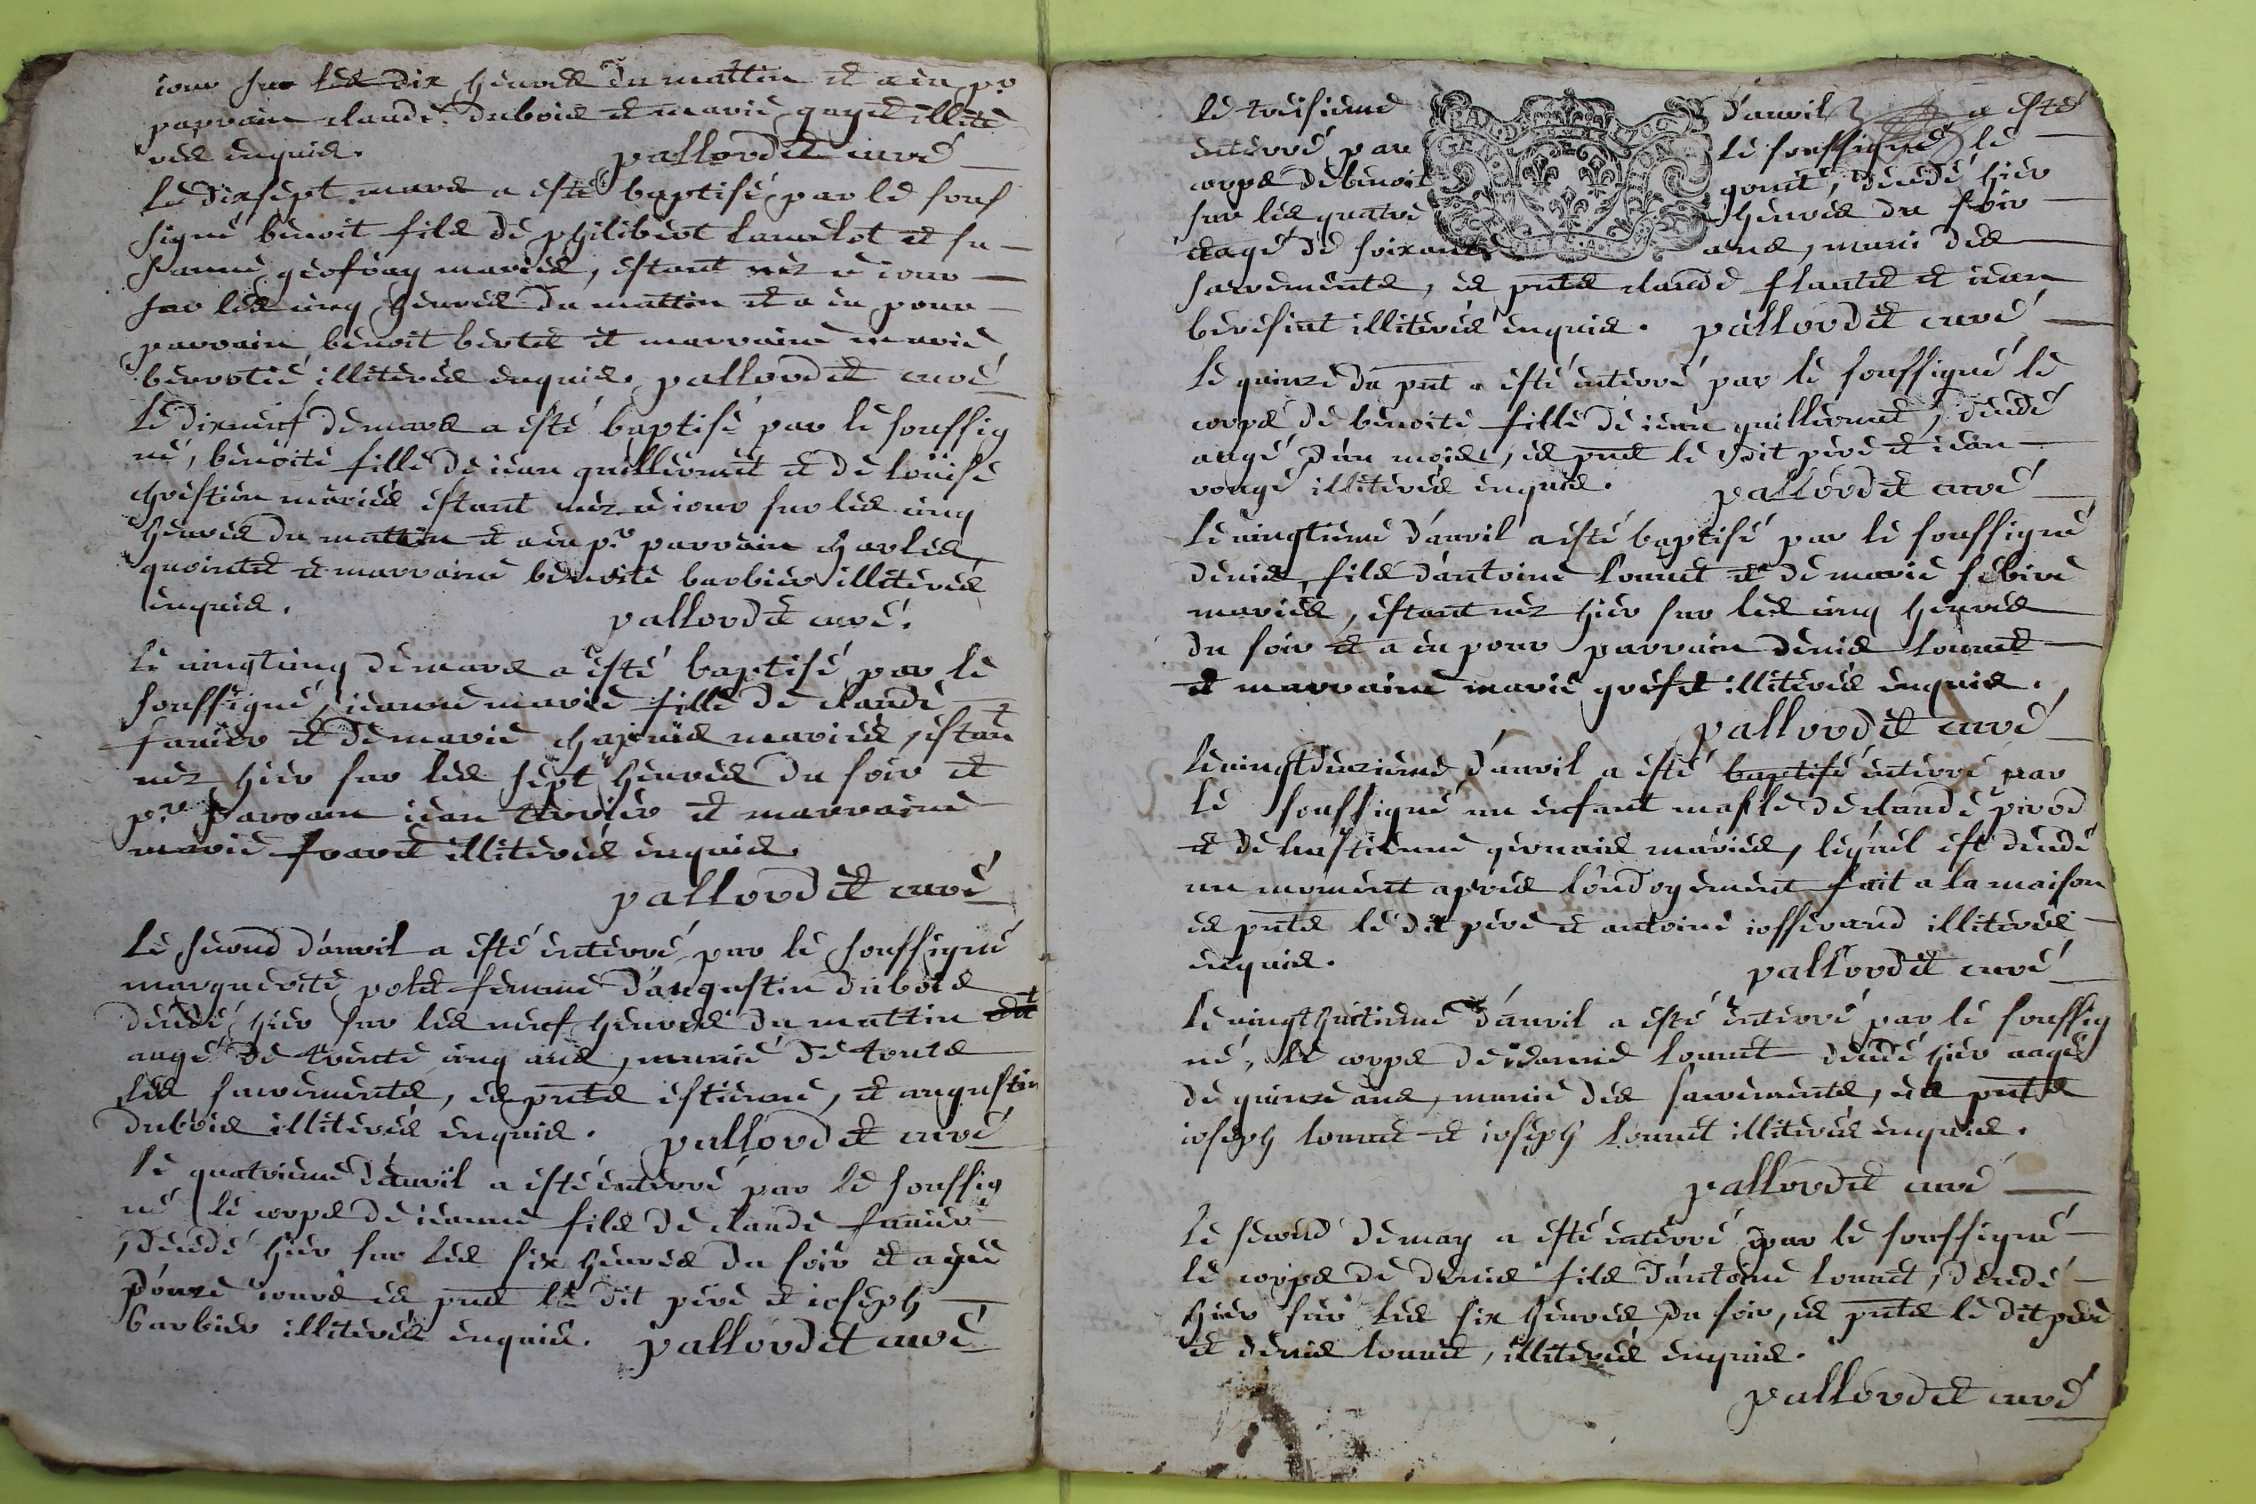 iour sur les dix heures du mattin et a eu pr
parrain claude dubois et marie illite
rés enquis. pallordet curé
Le dixsept mars a esté baptisé par le souf
signé benoit fils de philibert lamelot et su
sanne geofray mariés, estant néz ce iour
sur les cinq heures du mattin et a eu pour
parrain benoit bertet et marraine marie
illiterés enquis. pallordet curé
Le dixneuf de mars a esté baptisé par le souffig
né, benoite fille de iean guillermet et de loüise
chrestien mariés estant néz ce iour sur les cinq
heures du mattin et a eu pr parrain charles
et marraine benoite barbier illiterés
enquis. pallordet curé.
Le vingtcinq de mars a esté baptisé par le
souffigné, ieanne marie fille de claude
farier et de marie chapuis mariés, estant
néz hier sur les sept heures du soir et
pr Parrain iean et marraine
marie illiterés enquis.
pallordet curé
Le second d'auril a esté enterré par le souffigné
marguerite polet femme d'augustin dubois
decedé hier sur les neuf heures du mattin
aagé de trente cinq ans, munie de touts
les sacrements, es pnts estienne, et augustin
dubois illiterés enquis. pallordet curé
Le quatrieme d'auril a esté enterré par le souffig
né le corps de ieanne fils de claude farier
, decedé hier sur les six heures du soir et agée
d'onze iours es pnts le dit pere et ioseph
barbier illiterés enquis. pallordet curé
Le treisieme d'auril a esté
enterré par le souffigné le
corps de benoit decedé hier
sur les quatre heures du soir
aagé de soixante ans, muni des
sacrements, es pnts claude flantet et iean
illiterés enquis. pallordet curé
Le quinze du pnt a esté enterré par le souffigné le
corps de benoite fille de iean guillermet, decedé
aagé d'un mois, es pnts le dit pere et iean
rongé illiterés enquis. pallordet curé
Le vingtieme d'auril a esté baptisé par le souffigné
denis, fils d'antoine lonnet et de marie sebire
mariés, estant néz hier sur les cinq heures
du soir et a eu pour parrain denis lonnet
et marraine marie grefet illiterés enquis.
pallordet curé
Le vingtdeuzieme d'auril a esté baptisé enterré par
le souffigné un enfant masle de claude pirod
et de bastienne geruais mariés, lequel est decedé
un moment aprés l'ondoyement fait a la maison
es pnts le dit pere et antoine iosserand illiterés
enquis. pallordet curé
Le vingthuitieme d'auril a esté enterré par le souffig
né, le corps de ieanne lonnet decedé hier aagés
de quinze ans, munie des sacrements, es pnts
ioseph lonnet et ioseph lonnet illiterés enquis.
pallordet curé
Le second de may a esté enterré par le souffigné
le corps de denis fils d'antoine lonnet, decedé
hier sur les six heures du soir, es pnts le dit pere
et denis lonnet, illiterés enquis.
pallordet curé